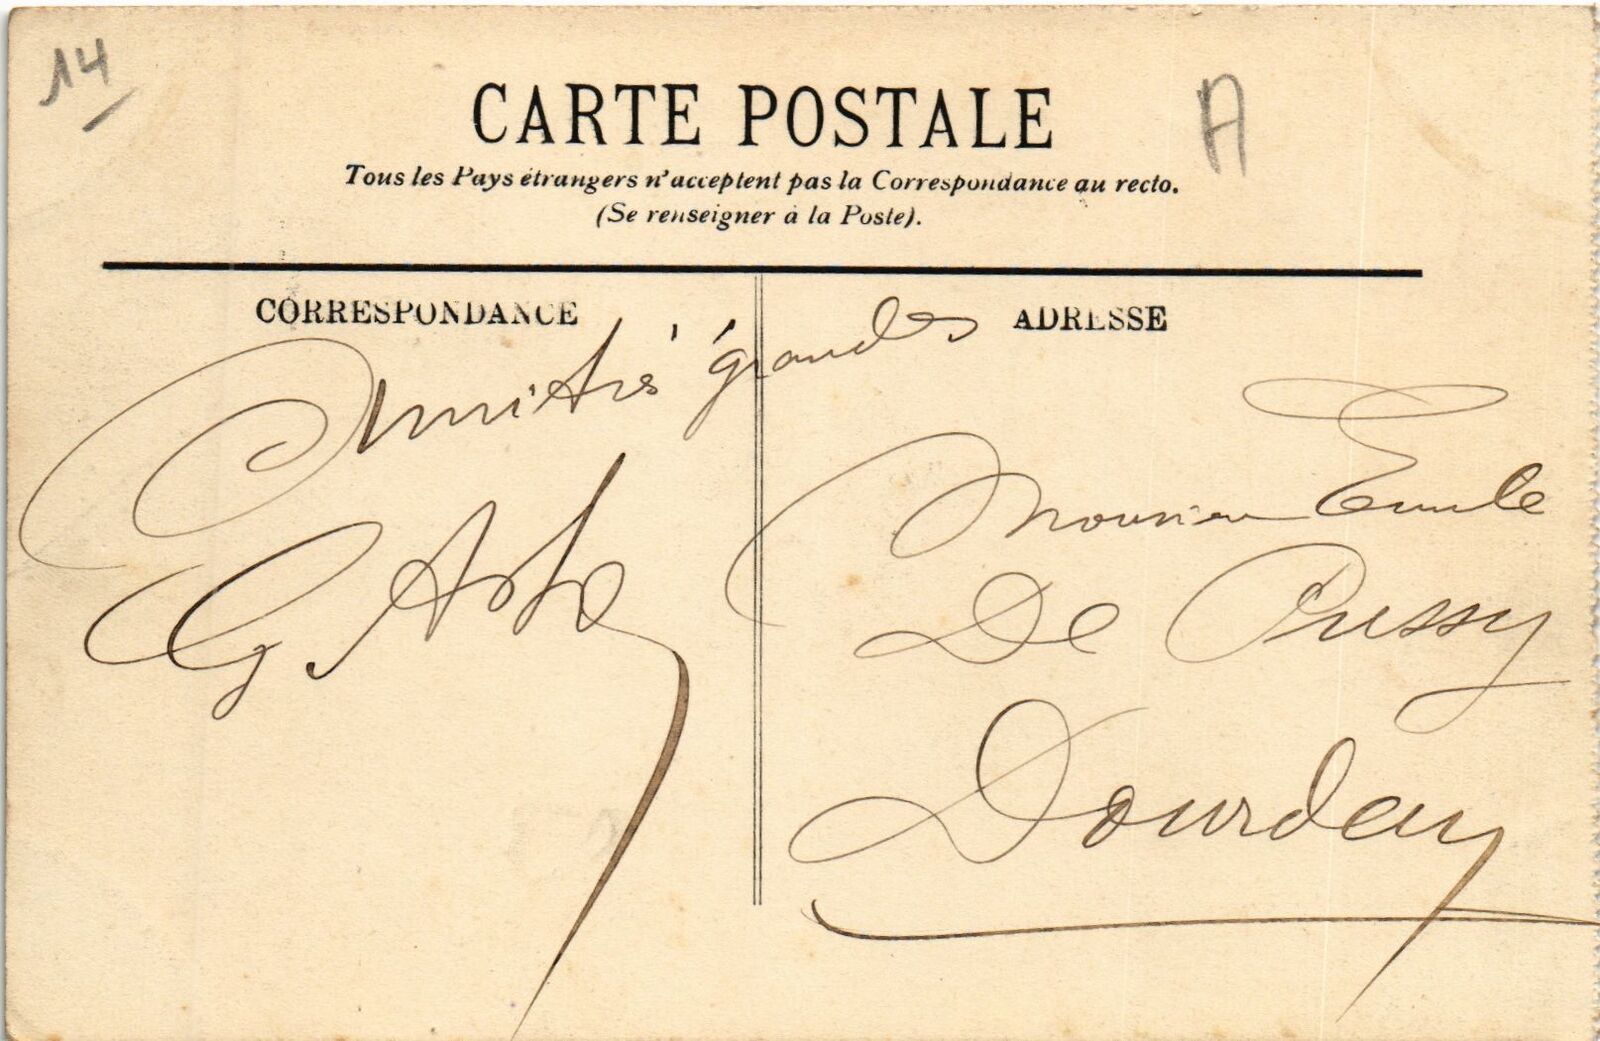 14
A
CARTE POSTALE
Tous les Pays étrangers n'acceptent pas la Correspondance au recto.
(Se renseigner à la Poste).
CORRESPONDANCE
Amitiés grandes
ADRESSE
Monsieur Emile
De Prussy
Dourdan